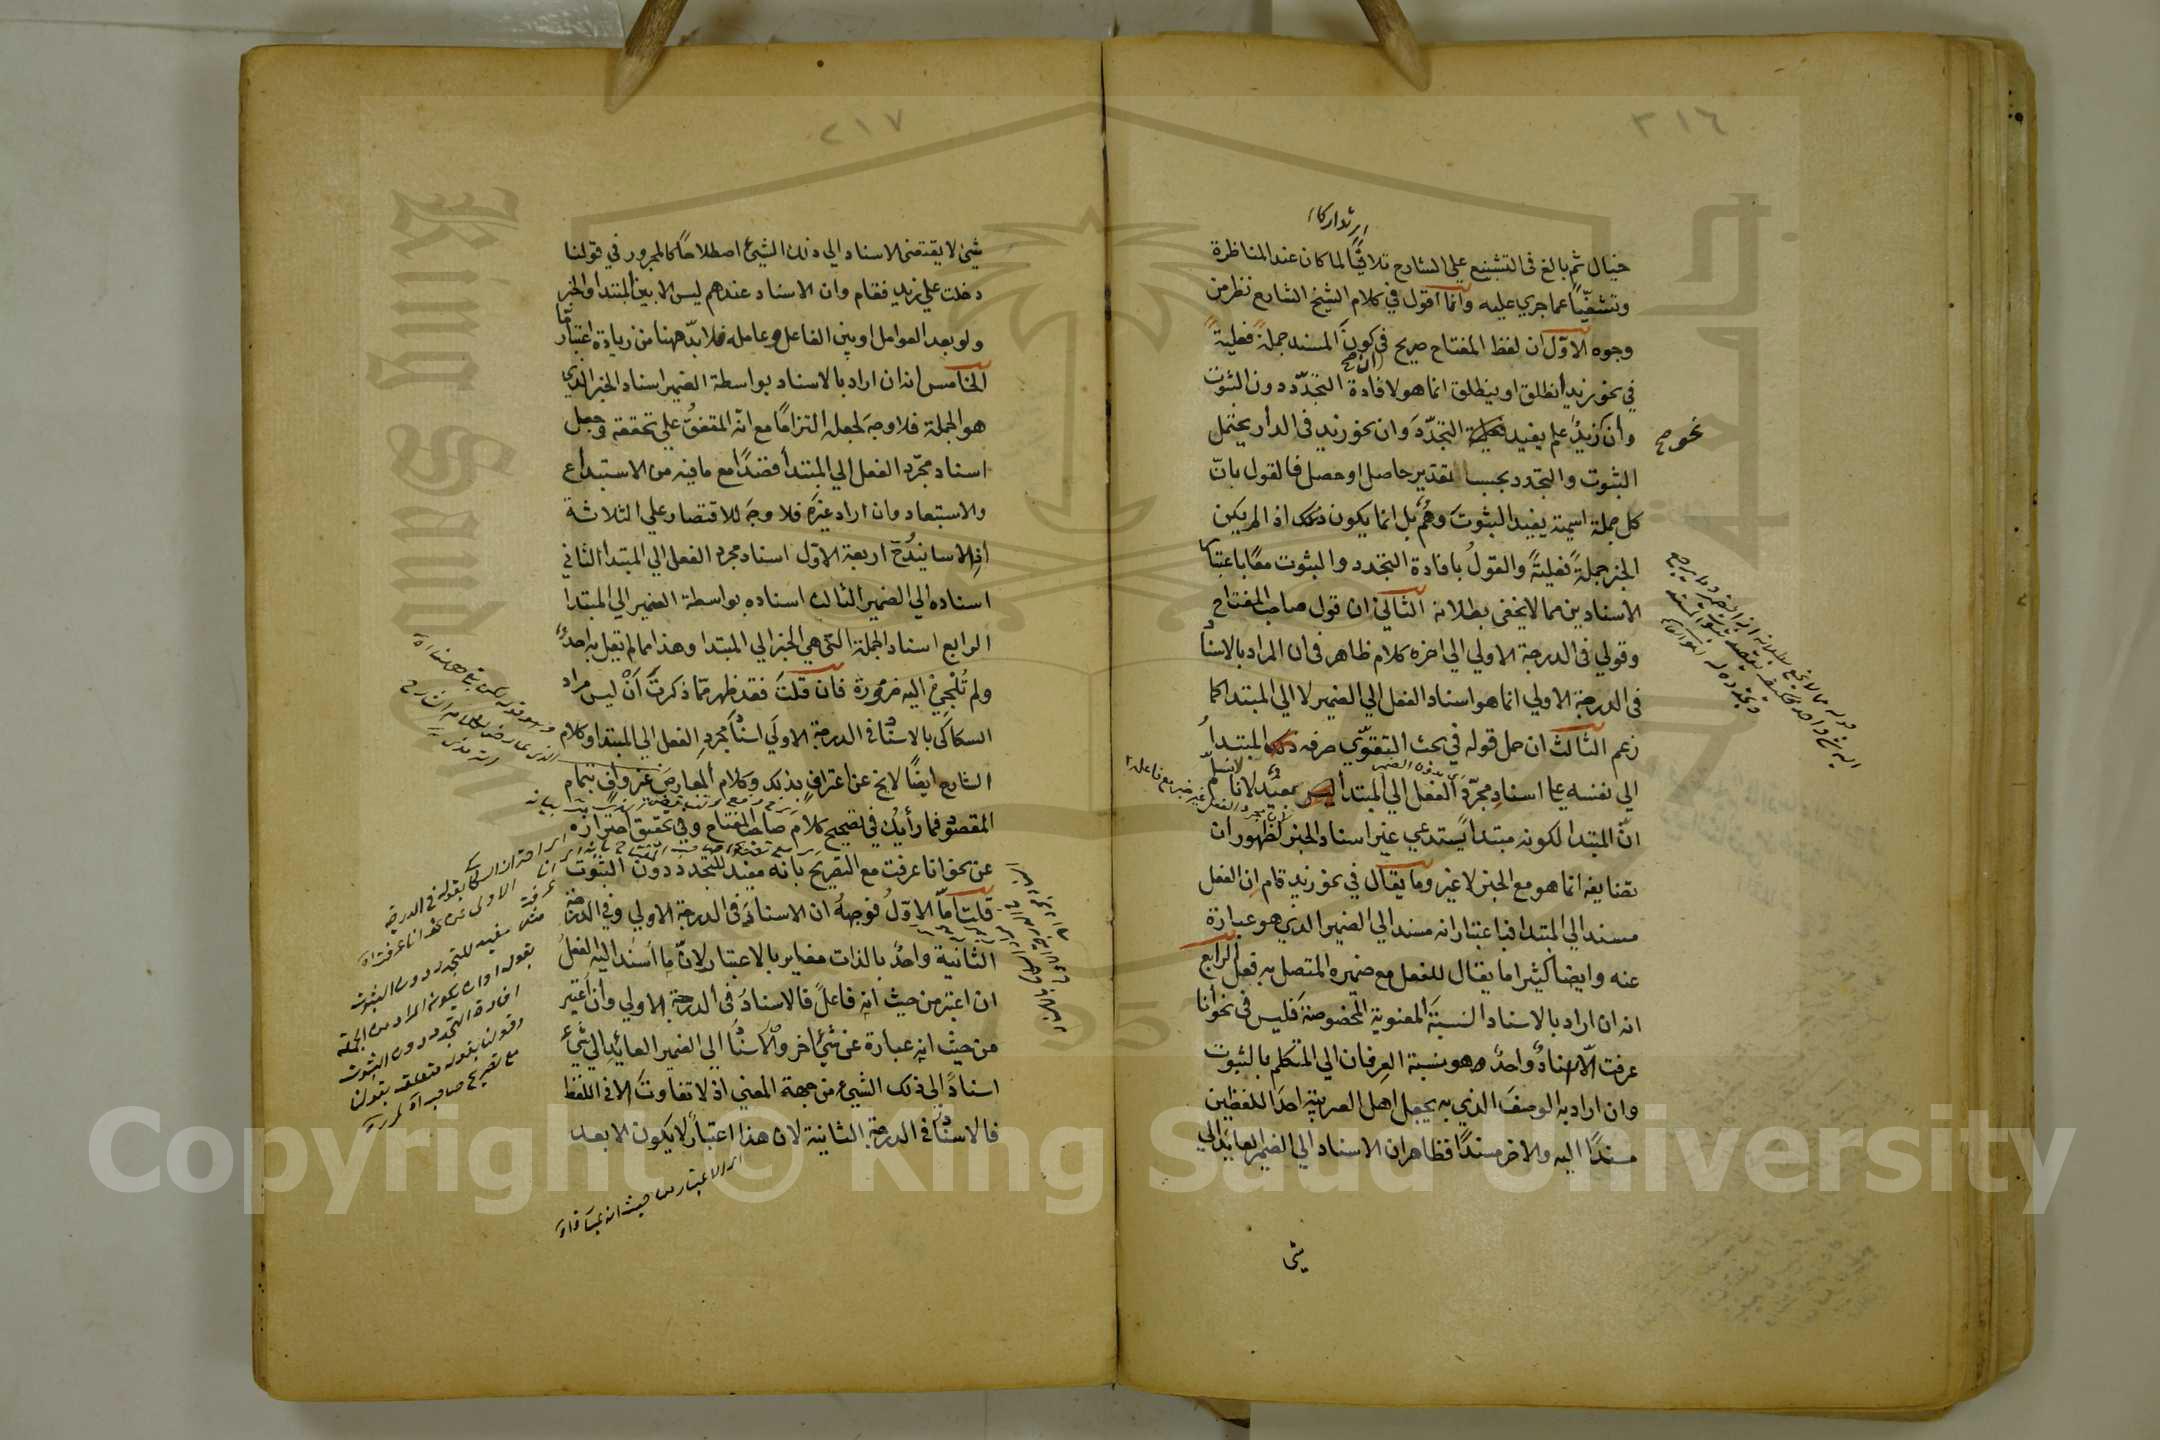 ٣١٦
اى تداركا
خيال ثم بالغ فى التشنيع على الشارح تلافيًا لما كان عند المناظرة
وتشفّيًا عما جرى عليه وانما اقول في كلام الشيخ الشارح نظر من
وجوه الاوّل ان لفظ المفتاح صريح فى كون المسند جملةً فعليةً
في نحو زيد انطلق او ينطلق انما هو لافادة التجدّد دون الثبوت
وأن زيدٌ علم يفيد التجدّدَ وان نحو زيد فى الدار يحتمل
نحو صح
الثبوت والتجدد بحسب تقدير حاصل او حصل فالقول بانّ
كل جملة اسمية يفيد الثبوتَ وهمٌ بل انما يكون ذلك اذا لم يكن
الخبر جملةً فعليةً والقولُ بافادة التجدد والثبوت معًا باعتبار
الاسنادين مما لا يخفى بطلانه الثاني ان قول صاحب المفتاح
وقولي فى الدرجة الاولي الى اخره كلام ظاهر فى ان المراد بالاسناد
فى الدرجة الاولي انما هو اسناد الفعل الي الضمير لا الي المبتدا كما
زعم الثالث ان حمل قوله في بحث التقوّي صرفه ذلك المبتدأُ
الي نفسه على اسنادِ مجرّدِ الفعل الي المبتدأ ليس بمفيد لانا لا نسلّم
انّ المبتدا لكونه مبتدا يستدعي غير اسناد الخبر لظهور ان
تضايفه انما هو مع الخبر لا غير وما يقال في نحو زيد قام إن الفعل
مسند الي المبتدا فباعتبار انه مسند الي الضمير الذي هو عبارة
عنه وايضا كثيرا ما يقال للفعل مع ضميره المتصل به فعل الرابع
انه ان اراد بالاسناد النسبةَ المعنوية المخصوصةَ فليس فى نحو أنا
عرفت الّا اسنادٌ واحدٌ وهو نسبة العِرفان الي المتكلم بالثبوت
وان اراد به الوصفَ الذي به يجعل اهل العربية احدَ اللفظين
مسندًا اليه والاخر مسندًا فظاهر ان الاسناد الي الضمير العايد الي
شئ
٣١٧
شئ لا يقتضى الاسناد الي ذلك الشئ اصطلاحًا كالمجرور في قولنا
دخلت علي زيد فقام وان الاسناد عندهم ليس الا بين المبتدا والخبر
ولو بعد العوامل او بين الفاعل وعامله فلا بدّ ههنا من زيادة اعتبار مّا
الخامس انه ان اراد بالاسناد بواسطة الضمير اسناد الخبر الذي
هو الجملة فلا وجهَ لجعله التزامًا مع انه المتفقُ علي تحققه وجعل
اسناد مجرّد الفعل الي المبتدأ قصدًا مع ما فيه من الاستبداع
والاستبعاد وان اراد غيرَه فلا وجهَ للاقتصار علي الثلاثة
اذ الاسانيد ح اربعة الاوّل اسناد مجرد الفعل الي المبتدا الثاني
اسناده الي الضمير الثالث اسناده بواسطة الضمير الي المبتدا
الرابع اسناد الجملة التي هي الخبر الي المبتدا وهذا مما لم يقل به احدٌ
ولم تُلجئ اليه ضرورة فان قلتَ فقد ظهر ممّا ذكرتَ أنْ ليس مراد
السكاكى بالاسناد فى الدرجة الاولَى اسنادَ مجرد الفعل الى المبتدا وكلام
الشارح ايضًا لا يخ عن اعترافٍ بذلك وكلام المعارضَ غير وافٍ بتمام
المقصود فما رأيك في تصحيح كلامَ صاحب المفتاح وفي تحقيق احترازه
عن نحو انا عرفت مع التصريح بانه مفيد للتجدد دون الثبوت
قلت امّا الاوّلُ فوجهُه ان الاسنادَ فى الدرجة الاولي وفي الدرجة
الثانية واحدٌ بالذات مغاير بالاعتبار لانّ ما أسند اليه الفعلُ
ان اعتبر من حيث انه فاعلٌ فالاسنادُ فى الدرجة الاولي وان اعتبر
من حيث انه عبارة عن شئ آخر والاسناد الي الضمير العايد الي شئ
اسنادٌ الي ذلك الشئ من جهة المعني اذ لا تفاوتَ الا فى اللفظ
فالاسناد فى الدرجة الثانية لان هذا اعتبارٌ لا يكون الا بعد
اى احتراز السكاكى بقوله فى الدرجة
الاولى عن نحو انا عرفت
مفيد للتجدد دون الثبوت
بقوله او ان يكون المراد من الجملة
افادة التجدد دون الثبوت
وقولنا بقوله متعلق بقولنا
اى الاعتبار من حيث انه عبارة
Copyright © King Saud University